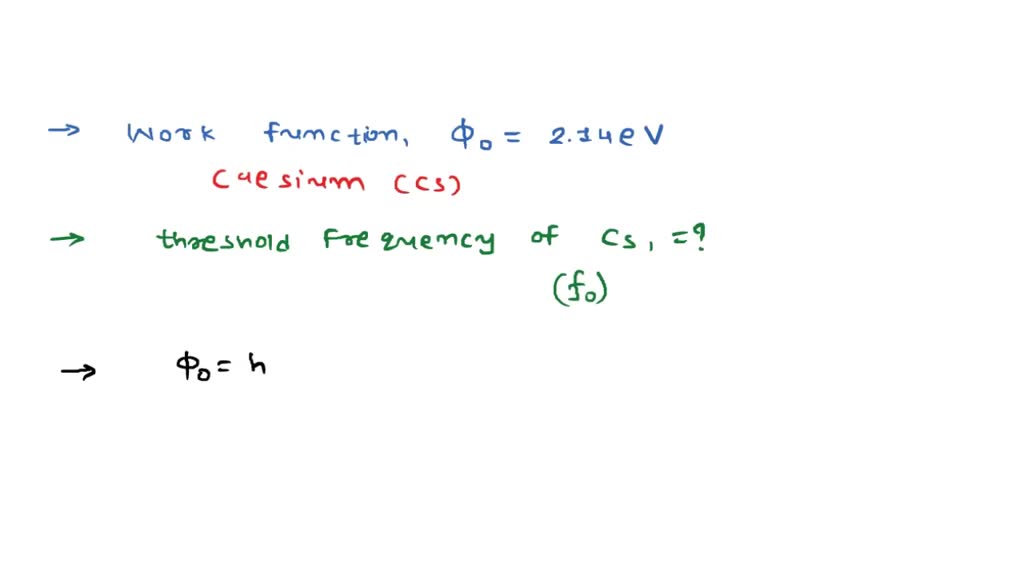 → Work function, Φ₀ = 2.14eV
Caesium (Cs)
→ threshold frequency of Cs, = ?
(f₀)
→ Φ₀ = h